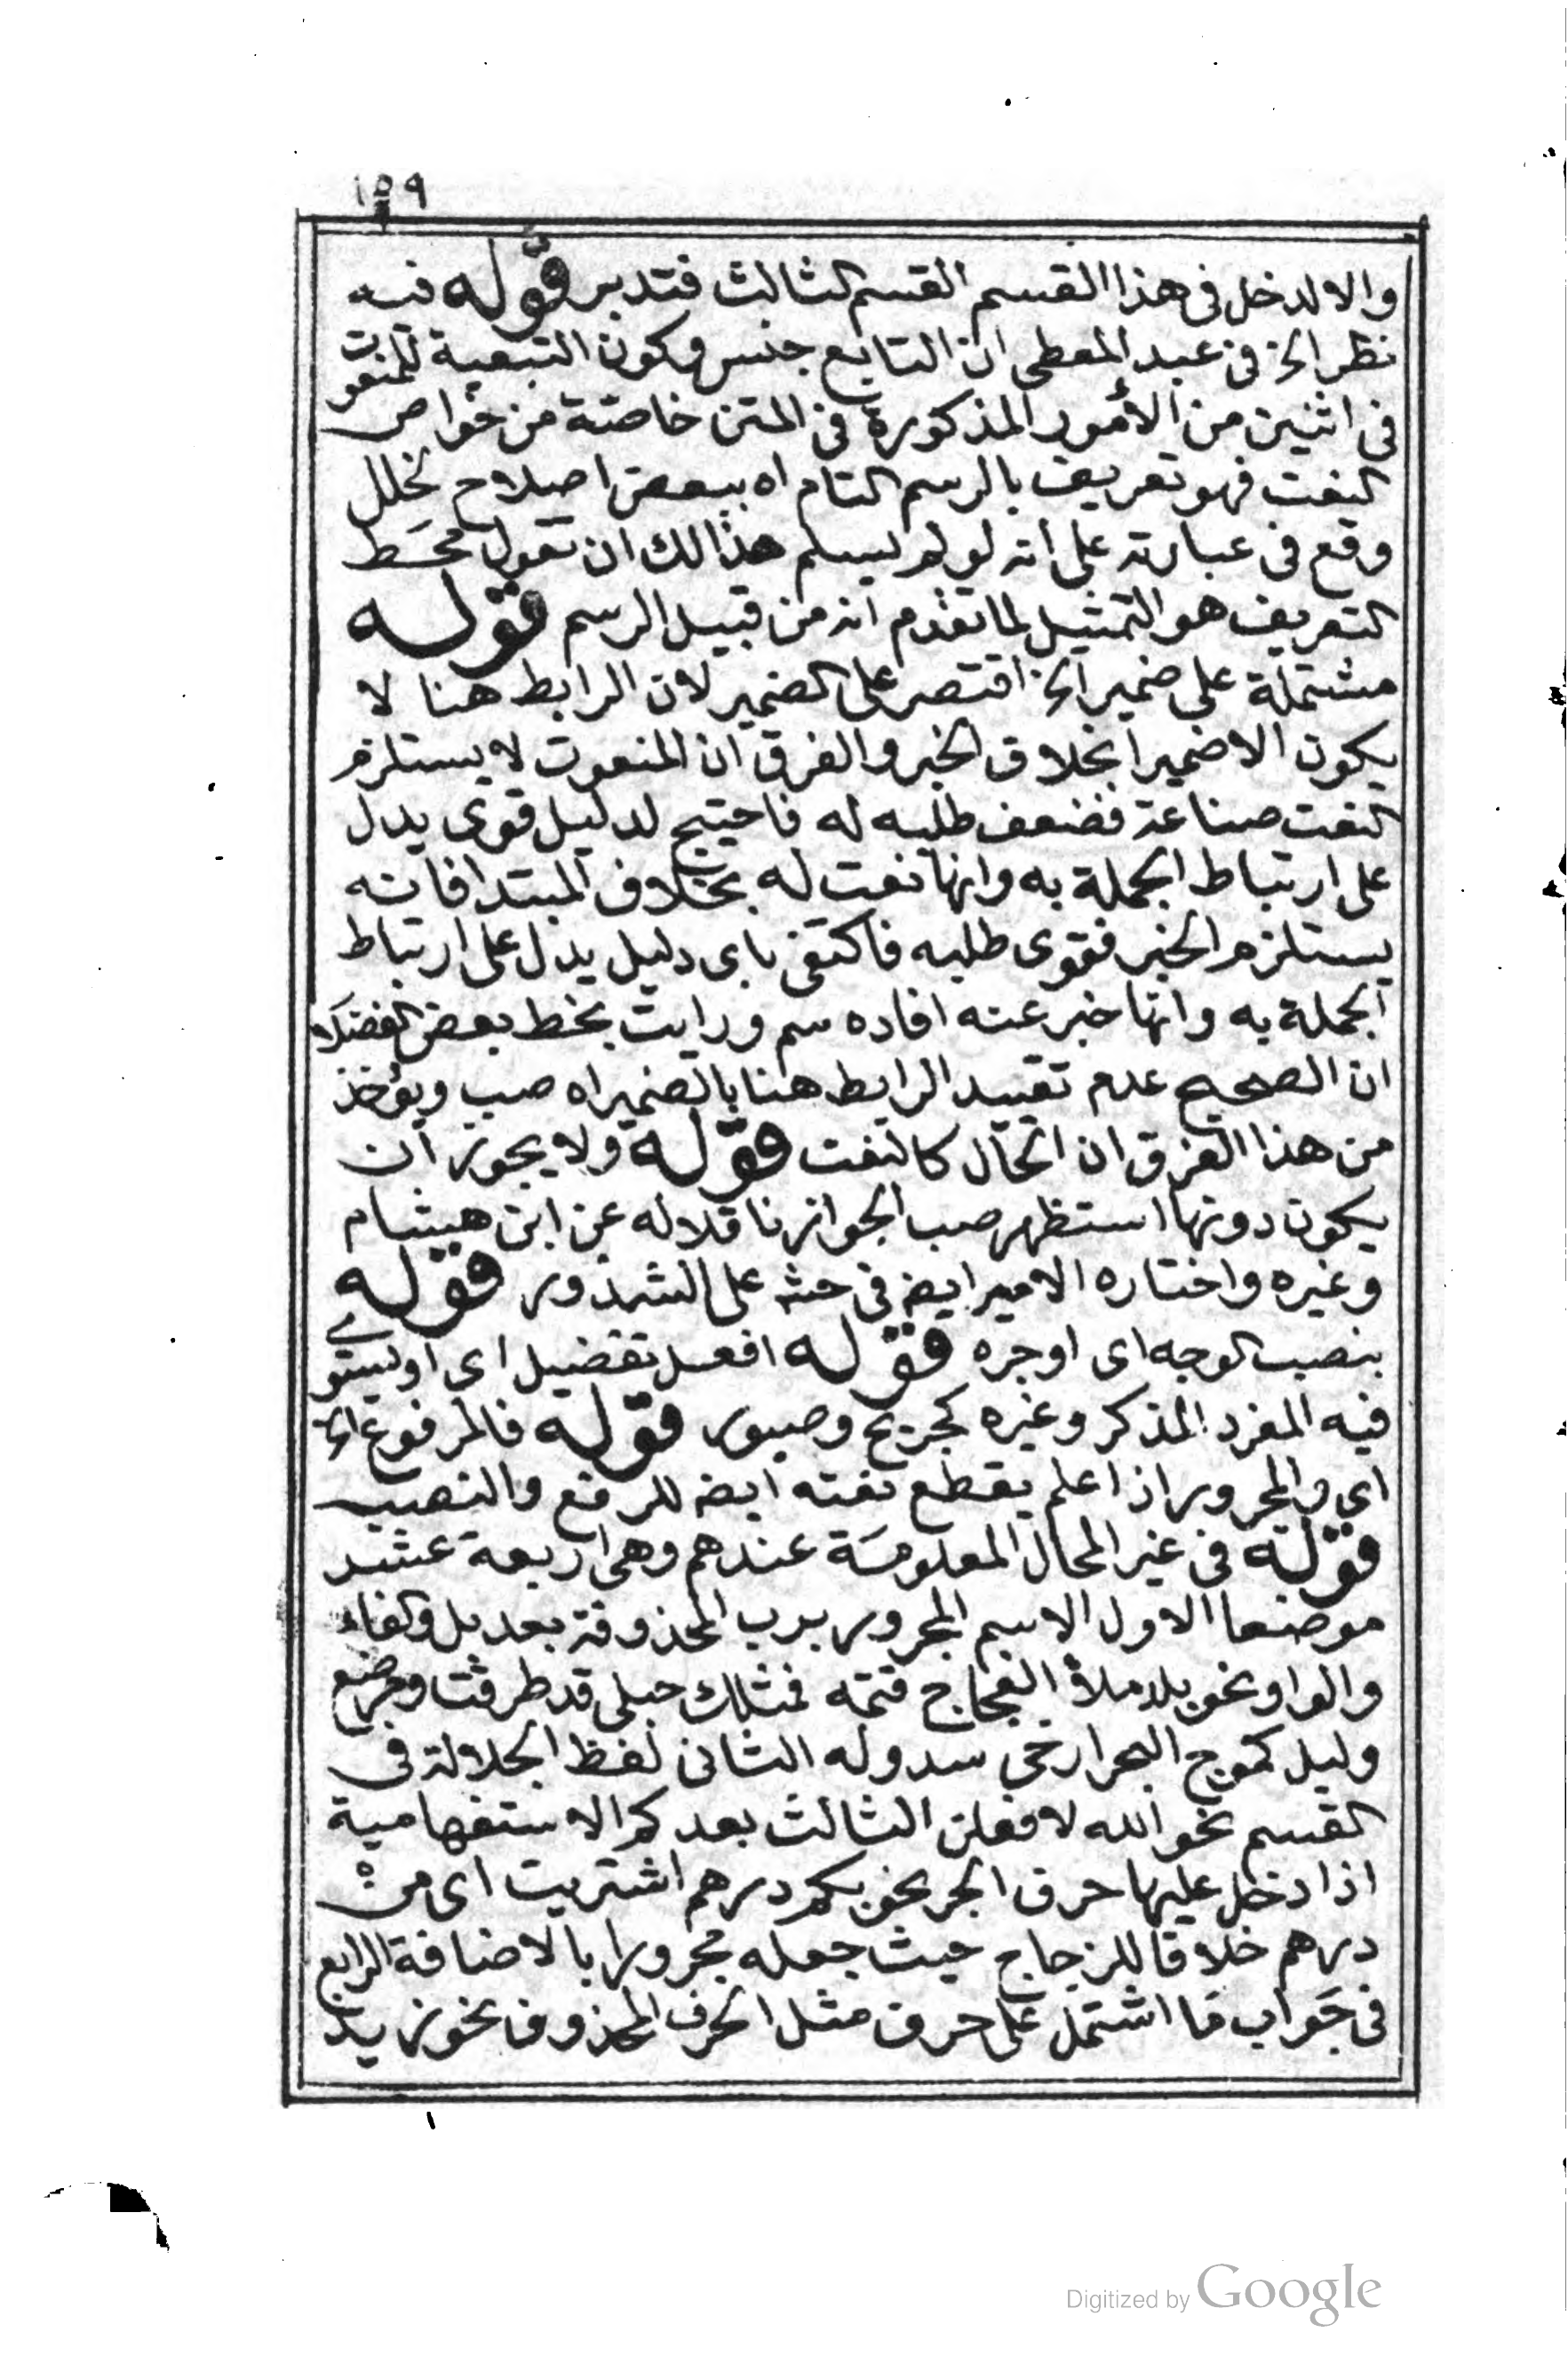 ١٥٩
والا لدخل فى هذا القسم القسم الثالث فتدبر قوله فيه
نظر الخ فى عبد المعطى ان التابع جنس وكون التبعية للمنعوت
فى اثنين من الأمور المذكورة فى المتن خاصة من خواص
النعت فهو تعريف بالرسم التام اه ببعض اصلاح لخلل
وقع فى عبارته على انه لو لم يسلم هذا لك ان تقول محط
التعريف هو التمثيل لما تقدم انه من قبيل الرسم قوله
مشتملة على ضمير الخ اقتصر على الضمير لان الرابط هنا لا
يكون الا ضميرا بخلاف الخبر والفرق ان المنعوت لا يستلزم
النعت صناعة فضعف طلبه له فاحتيج لدليل قوى يدل
على ارتباط الجملة به وانها نعت له بخلاف المبتدا فانه
يستلزم الخبر فقوى طلبه فاكتفى باى دليل يدل على ارتباط
الجملة به وانها خبر عنه افاده سم ورايت بخط بعض الفضلاء
ان الصحيح عدم تقييد الرابط هنا بالضمير اه صب ويؤخذ
من هذا الفرق ان الحال كالنعت قوله ولا يجوز ان
يكون دونها استظهر صب الجواز ناقلا له عن ابن هشام
وغيره واختاره الامير ايضه فى حشه على الشذور قوله
بنصب الوجه اى اوجره قوله افعل تفضيل اى او يستوى
فيه المفرد المذكر وغيره كجريح وصبور قوله فالمرفوع الخ
اى والمجرور اذا علم يقطع نعته ايضه للرفع والنصب
قوله فى غير المحال المعلومة عندهم وهى اربعة عشر
موضعا الاول الاسم المجرور برب المحذوفة بعد بل والفاء
والواو نحو بلد ملأ الفجاج قتمه فمثلك حبلى قد طرقت ومرضع
وليل كموج البحر ارخى سدوله الثانى لفظ الجلالة فى
القسم نحو الله لافعلن الثالث بعد كم الاستفهامية
اذا دخل عليها حرف الجر نحو بكم درهم اشتريت اى من
درهم خلافا للزجاج حيث جعله مجرورا بالاضافة الرابع
فى جواب ما اشتمل على حرف مثل الحرف المحذوف نحو زيد
Digitized by Google